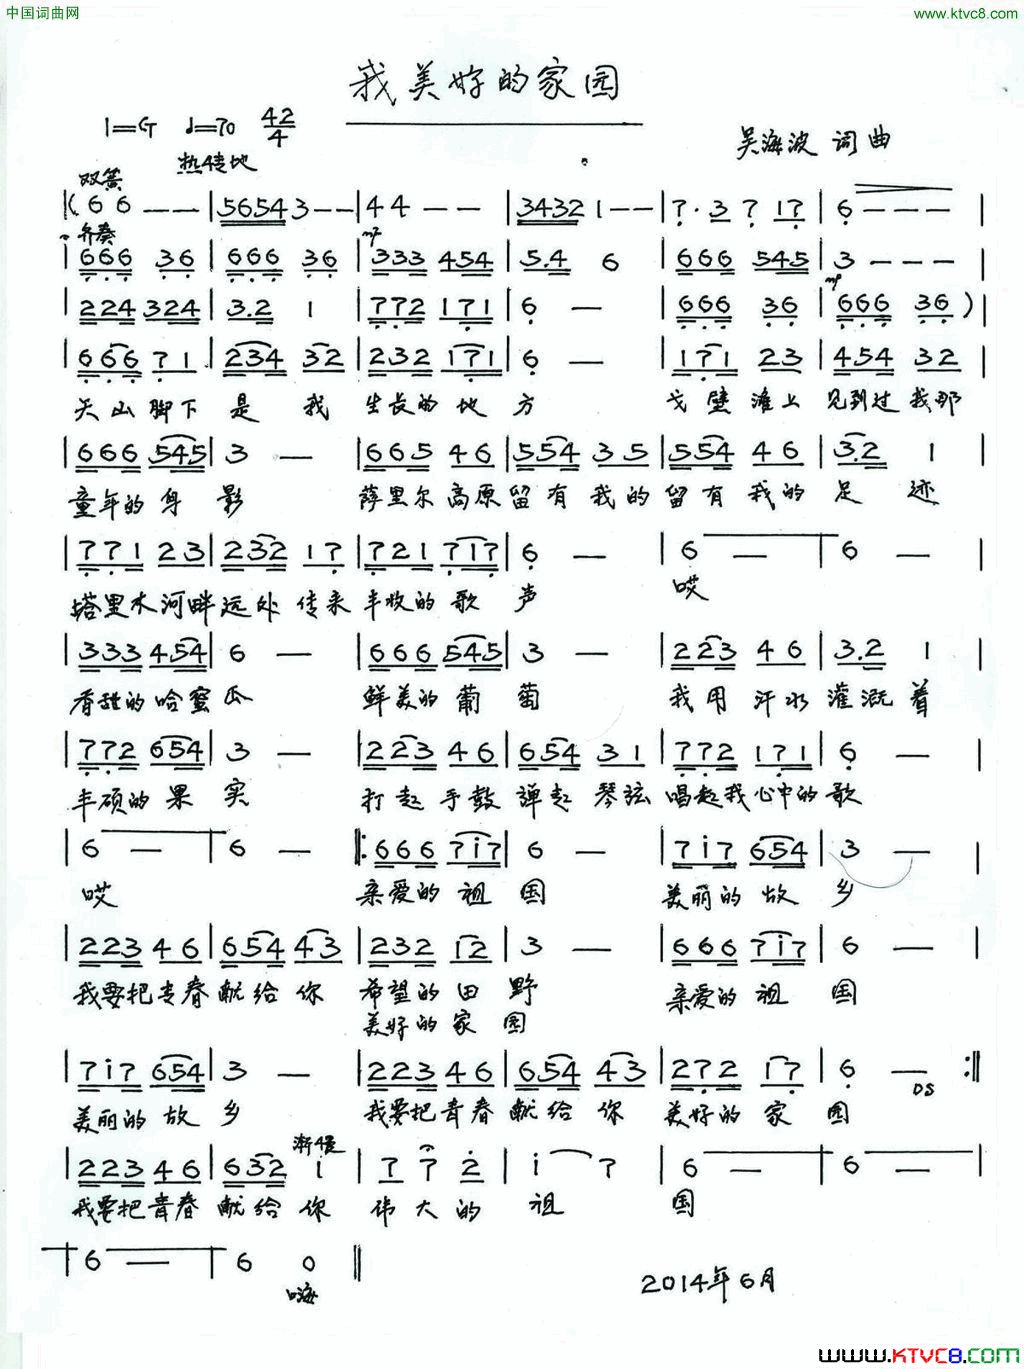 中国词曲网
www.ktvc8.com
我美好的家园
1=G ♩=70 42/4
吴海波 词曲
热情地
双簧
|(6 6 - - |5654 3 - - |4 4 - - |3432 1 - - |7· 3 7 17 |6 - - - |
齐奏
mf
|666 36 |666 36 |333 454 |5.4 6 |666 545 |3 - - - |
mp
|224 324 |3.2 1 |772 171 |6 - |666 36 |666 36 )|
|666 71 |234 32 |232 171 |6 - |171 23 |454 32 |
天山脚下是我生长的地方 戈壁滩上见到过我那
|666 545|3 - |665 46 |554 35 |554 46 |3.2 1 |
童年的身影 萨里尔高原留有我的留有我的足迹
|771 23 |232 17 |721 717 |6 - |6 - |6 - |
塔里木河畔远处传来丰收的歌声 哎
|333 454|6 - |666 545|3 - |223 46 |3.2 1 |
香甜的哈蜜瓜 鲜美的葡萄 我用汗水灌溉着
|772 654|3 - |223 46 |654 31 |772 171 |6 - |
丰硕的果实 打起手鼓弹起琴弦唱起我心中的歌
|6 - |6 - |:666 717|6 - |717 654 |3 - |
哎 亲爱的祖国 美丽的故乡
|223 46 |654 43 |232 12 |3 - |666 717 |6 - |
我要把青春献给你 希望的田野 亲爱的祖国
美好的家园
|717 654|3 - |223 46 |654 43 |272 17 |6 - :||
DS
美丽的故乡 我要把青春献给你 美好的家园
渐慢
|223 46 |632 i |7 7 2 |i 7 |6 - |6 - |
我要把青春献给你 伟大的祖国
|6 - |6 0 ||
嗨
2014年6月
www.KTVC8.com